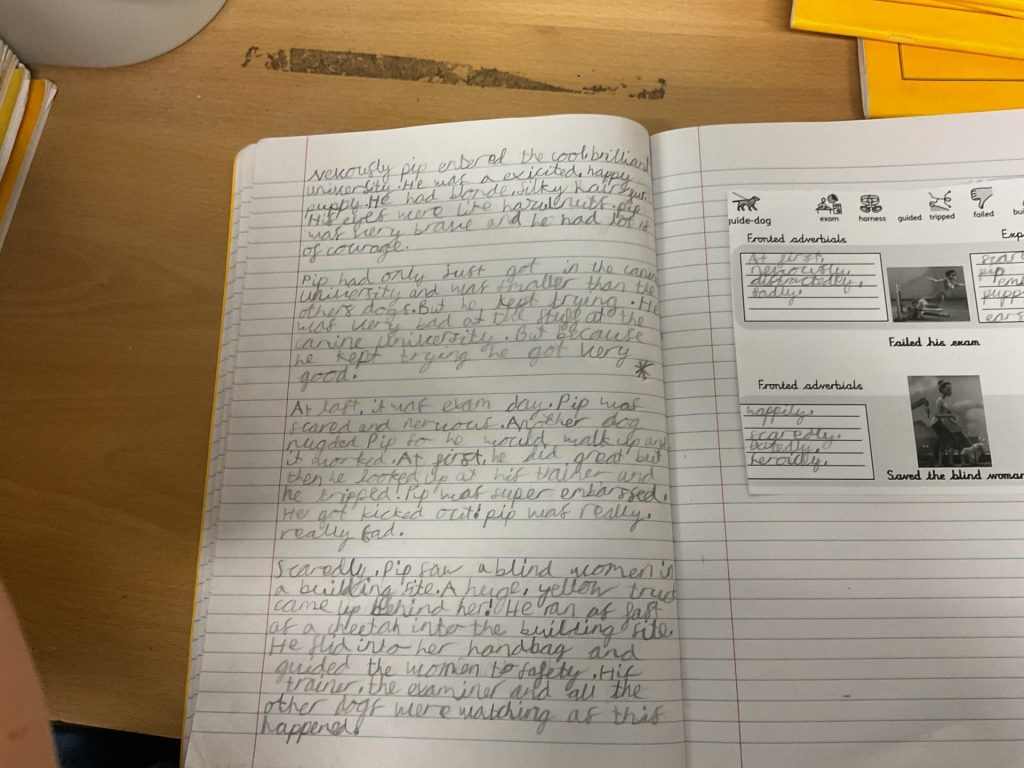 Nervously pip entered the cool, brilliant
university. He was a exicited, happy
puppy. He had blonde, silky hair
His eyes were like hazulnuts. pip
was very brave and he had lot
of courage.
Pip had only just got in the canine
university and was smaller than the
others dogs. But he kept trying. He
was very bad at the stuff at the
canine university. But because
he kept trying he got very
good. *
At last, it was exam day. Pip was
scared and nervous. Another dog
nugded Pip so he would walk up and
it worked. At first, he did great but
then he looked up at his trainer and
he tripped. Pip was super embarssed.
He got kicked out! pip was really,
really sad.
Scaredly, Pip saw a blind women in
a building site. A huge, yellow truck
came up behind her! He ran as fast
as a cheetah into the building site.
He slid into her handbag and
guided the women to safety. His
trainer, the examiner and all the
other dogs were watching as this
happened!
guide-dog exam harness guided tripped failed bu
Fronted adverbials Exp
At first,
nervously,
distractedly,
sadly,
scar
pip
emb
puppy
ears
Failed his exam
Fronted adverbials
happily,
scaredly,
heroicly,
Saved the blind woman